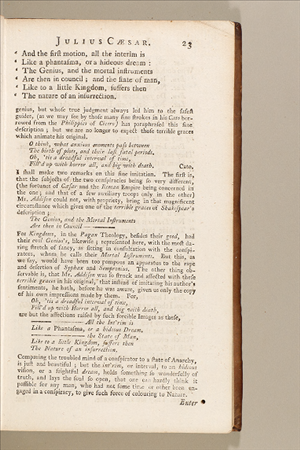 JULIUS CÆSAR. 23
" And the first motion, all the interim is
" Like a phantasma, or a hideous dream :
" The Genius, and the mortal instruments
" Are then in council ; and the state of man,
" Like to a little Kingdom, suffers then
" The nature of an insurrection.
genius, but whose true judgment always led him to the safest
guides, (as we may see by those many fine strokes in his Cato borrowed
from the Philippics of Cicero) has paraphrased this fine
description ; but we are no longer to expect those terrible graces
which animate his original.
O think, what anxious moments pass between
The birth of plots, and their last fatal periods,
Oh, 'tis a dreadful interval of time,
Fill'd up with horror all, and big with death. Cato.
I shall make two remarks on this fine imitation. The first is,
that the subjects of the two conspiracies being so very different,
(the fortunes of Cæsar and the Roman Empire being concerned in
the one ; and that of a few auxiliary troops only in the other)
Mr. Addison could not, with propriety, bring in that magnificent
circumstance which gives one of the terrible graces of Shakespear's
description ;
The Genius, and the Mortal Instruments
Are then in Council
For Kingdoms, in the Pagan Theology, besides their good, had
their evil Genius's, likewise ; represented here, with the most daring
stretch of fancy, as sitting in consultation with the conspirators,
whom he calls their Mortal Instruments. But this, as
we say, would have been too pompous an apparatus to the rape
and desertion of Syphax and Sempronius. The other thing observable
is, that Mr. Addison was so struck and affected with these
terrible graces in his original, that instead of imitating his author's
sentiments, he hath, before he was aware, given us only the copy
of his own impressions made by them. For,
Oh, 'tis a dreadful interval of time,
Fill'd up with Horror all, and big with death,
are but the affections raised by such forcible Images as these,
All the Int'rim is
Like a Phantasma, or a hideous Dream.
the State of Man,
Like to a little Kingdom, suffers then
The Nature of an insurrection.
Comparing the troubled mind of a conspirator to a state of Anarchy,
is just and beautiful ; but the int'rim, or interval, to an hideous
vision, or a frightful dream, holds something so wonderfully of
truth, and lays the soul so open, that one can hardly think it
possible for any man, who had not some time or other been engaged
in a conspiracy, to give such force of colouring to Nature.
Enter